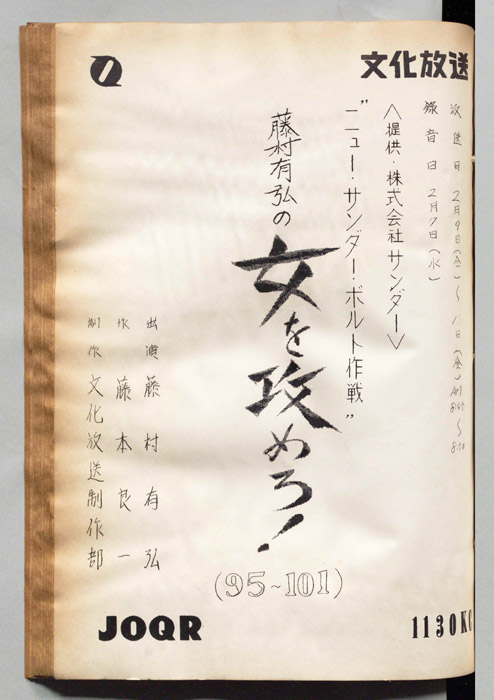 文化放送
放送日 2月9日(金)〜
録音日 2月7日(水)
〈提供・株式会社サンダー〉
"ニュー・サンダー・ボルト作戦"
藤村有弘の
女を攻めろ!
(95~101)
出演 藤村有弘
作 藤本良一
制作 文化放送制作部
JOQR
1130KC